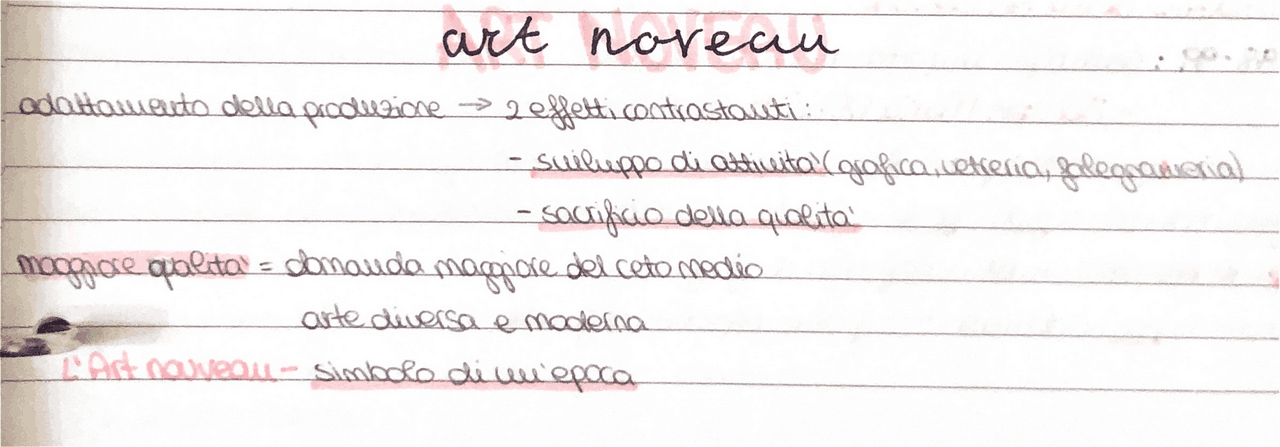 art noveau
adattamento della produzione → 2 effetti contrastanti:
- sviluppo di attività (grafica, vetreria, falegnameria)
- sacrificio della qualità
maggiore qualità = domanda maggiore del ceto medio
arte diversa e moderna
L'Art nouveau - simbolo di un'epoca